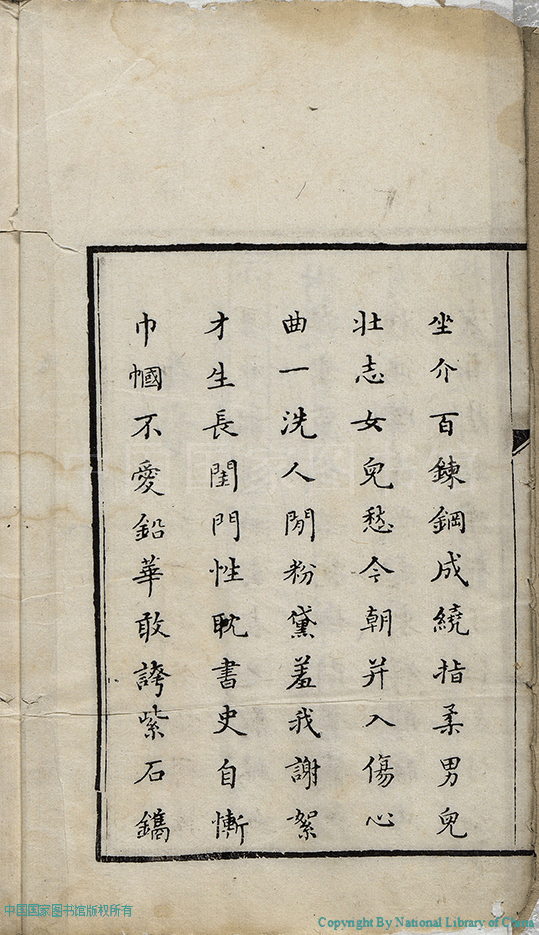 坐介百鍊鋼成繞指柔男兒
壯志女兒愁今朝并入傷心
曲一洗人閒粉黛羞我謝絮
才生長閨門性耽書史自慚
巾幗不愛鉛華敢誇紫石鐫
中国国家图书馆版权所有
Copyright By National Library of China